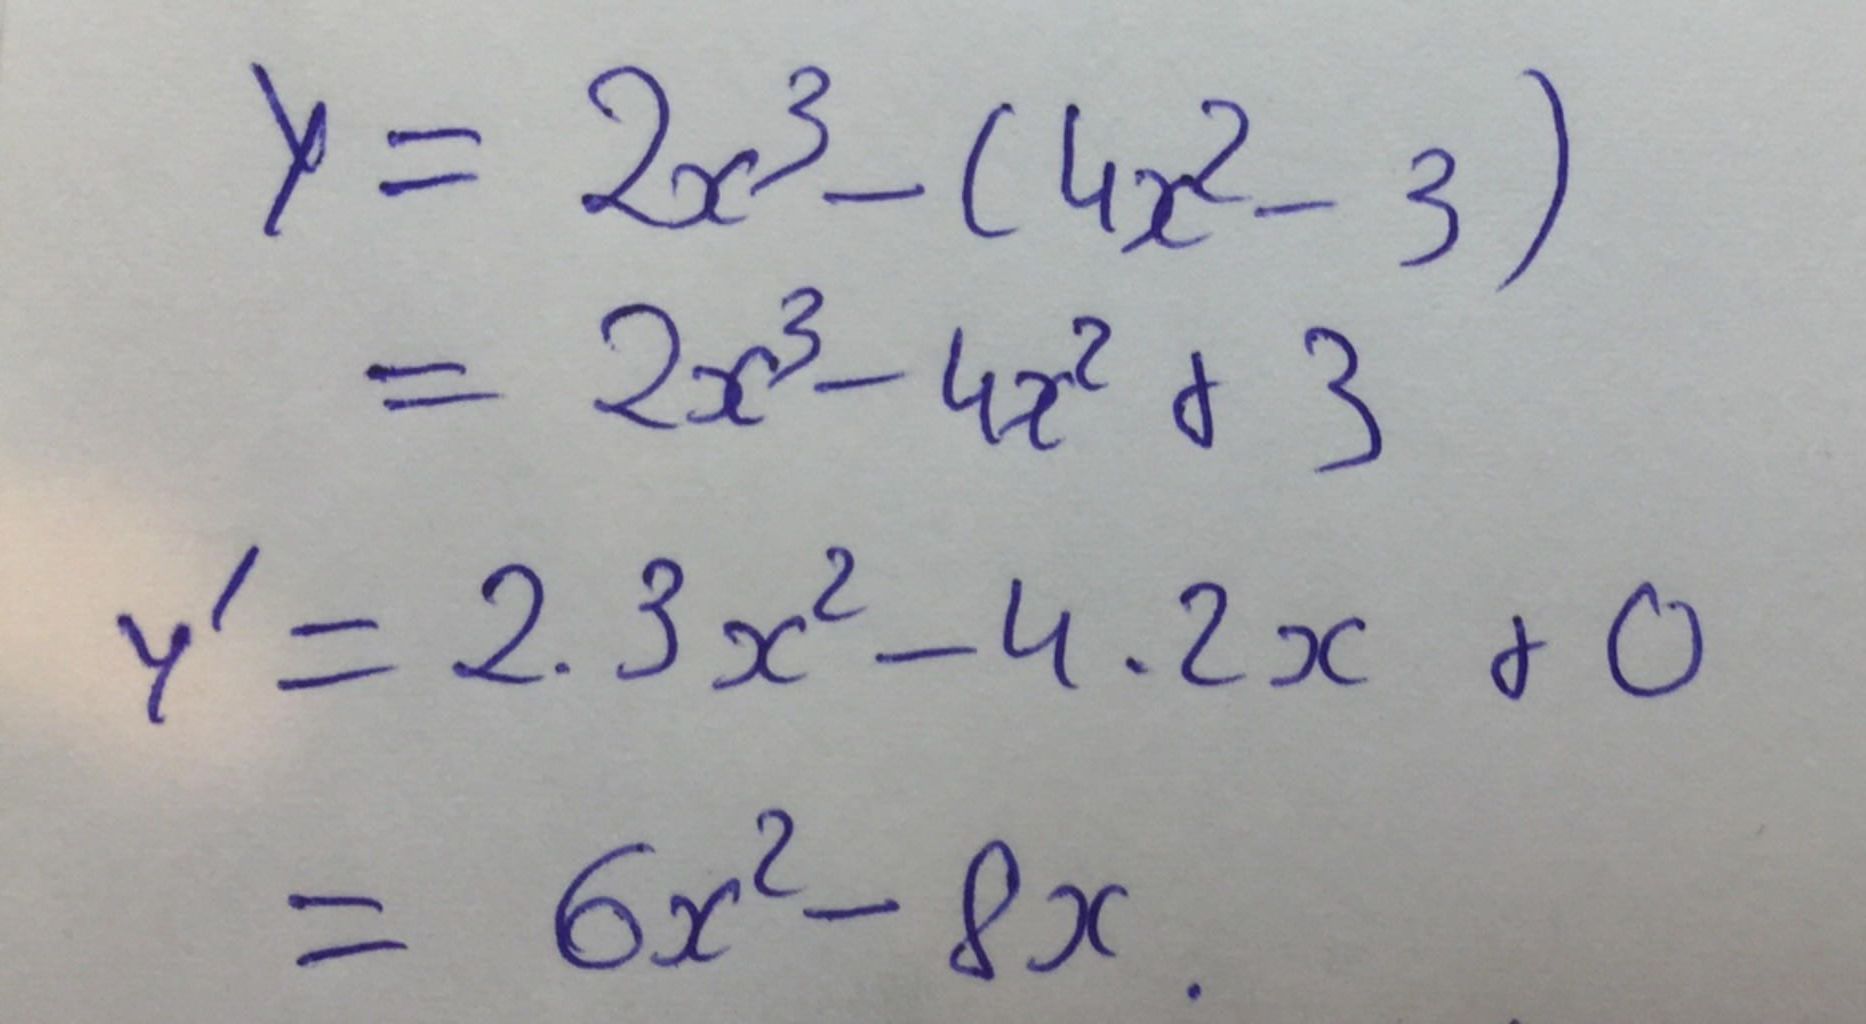 y = 2x³ - (4x² - 3)
= 2x³ - 4x² + 3
y' = 2.3x² - 4.2x + 0
= 6x² - 8x.